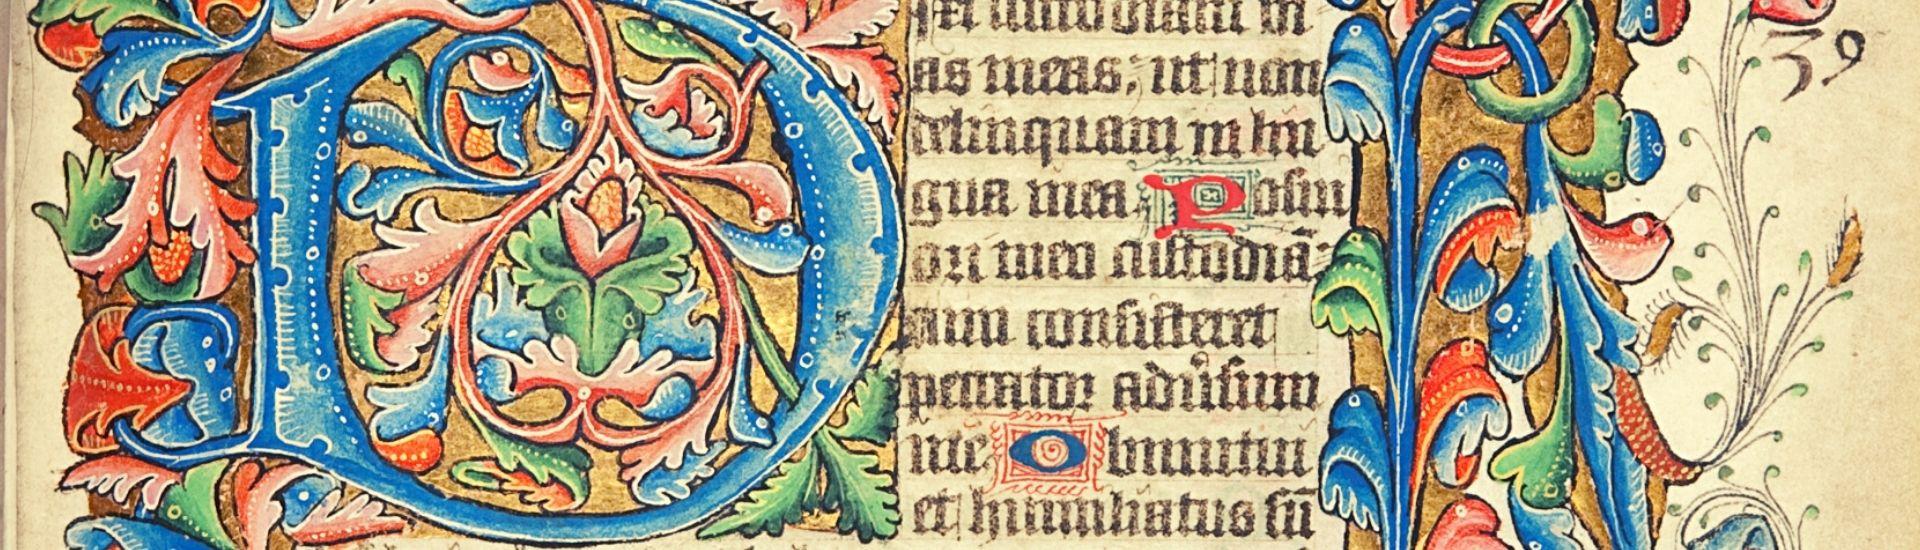 D
ixi custodiam vi
as meas: ut non
delinquam in lin
gua mea. Posui
ori meo custodiā:
cum consisteret
peccator adũsum
me. Obmutui
et humiliatus sū
39